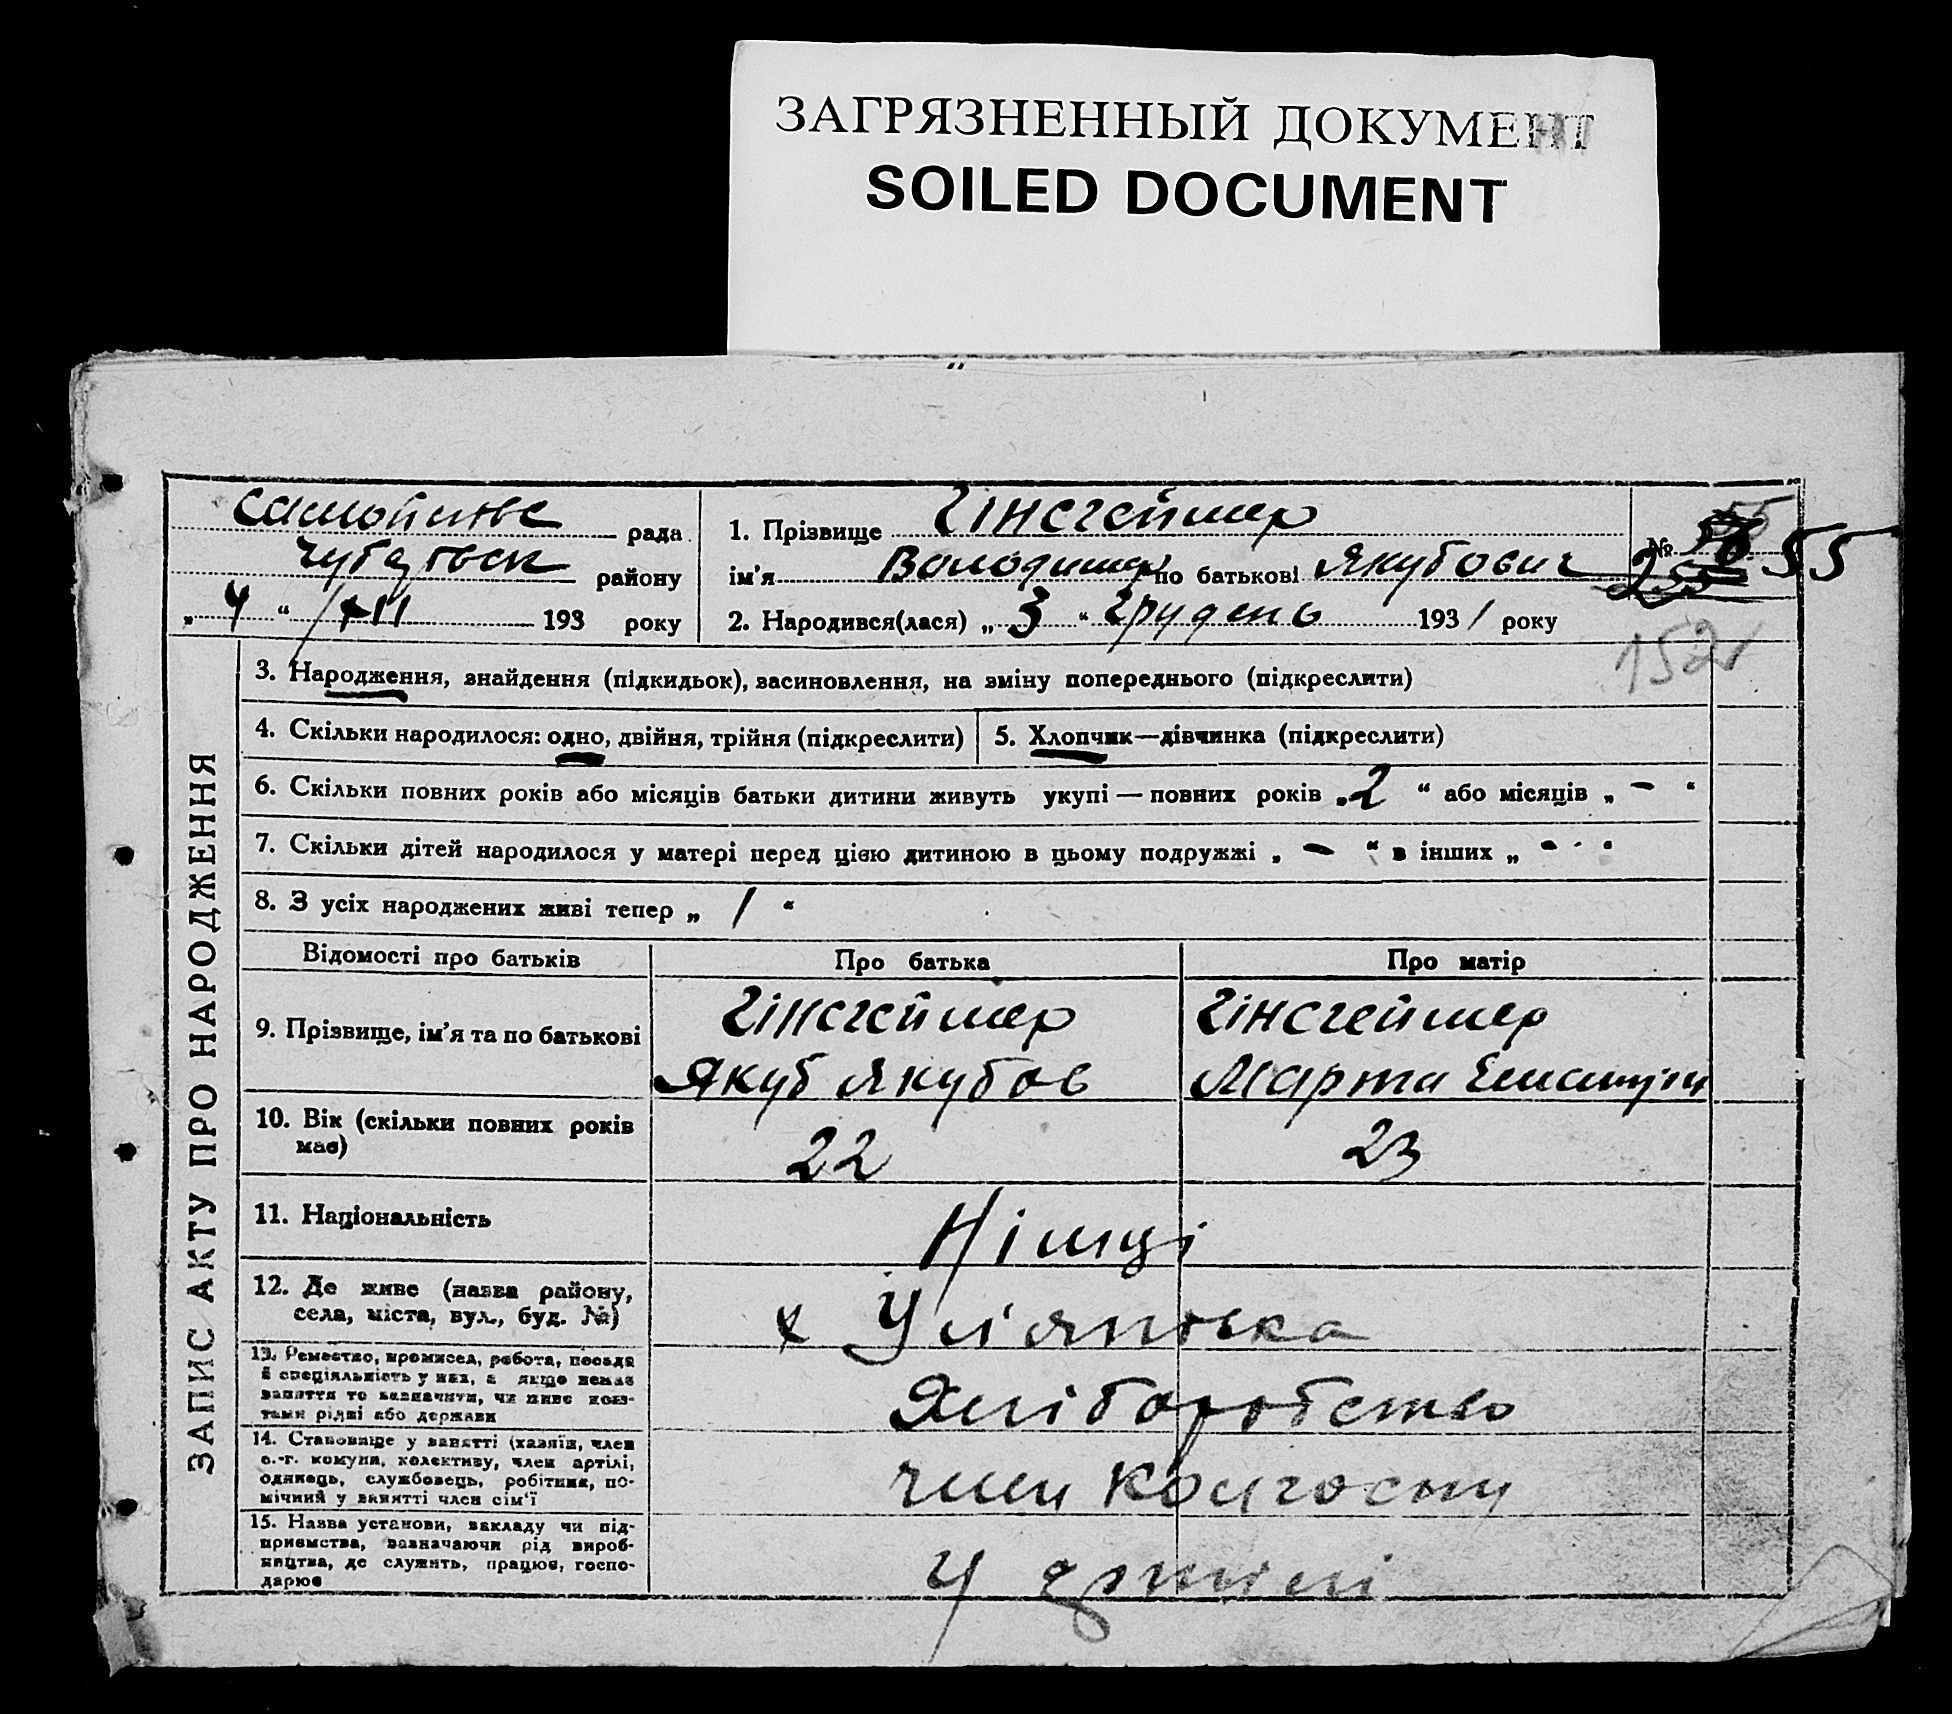 ЗАГРЯЗНЕННЫЙ ДОКУМЕНТ
SOILED DOCUMENT
рада
району
„ 4 “ /XII 193 року
1. Прізвище Гінсгеймер
ім'я Володимер по батькові Якубович
2. Народився(лася) „ 3 “ Грудень 1931 року
№ 55
152
ЗАПИС АКТУ ПРО НАРОДЖЕННЯ
3. Народження, знайдення (підкидьок), васиновлення, на зміну попереднього (підкреслити)
4. Скільки народилося: одно, двійня, трійня (підкреслити)
5. Хлопчик—дівчинка (підкреслити)
6. Скільки повних років або місяців батьки дитини живуть укупі — повних років „ 2 “ або місяців „ - “
7. Скільки дітей народилося у матері перед цією дитиною в цьому подружжі „ - “ в інших „ - “
8. З усіх народжених живі тепер „ 1 “
Відомості про батьків Про батька Про матір
9. Прізвище, ім'я та по батькові
Гінсгеймер
Якуб Якубов
Гінсгеймер
Марта
10. Вік (скільки повних років має)
22
23
11. Національність
Німці
12. Де живе (назва району,
села, міста, вул., буд. №)
х Уляновка
13. Ремество, промисел, робота, посада
й спеціяльність у них, а якщо немає
заняття то зазначити, чи живе кош-
тами рідні або держави
Хліборобство
14. Становище у занятті (хазяїн, член
с.-г. комуни, колективу, член артілі,
одинець, службовець, робітник, по-
мічний у занятті член сім'ї
член колгоспу
15. Назва установи, закладу чи під-
приємства, зазначаючи рід вироб-
ництва, де служить, працює, госпо-
дарює
у артілі